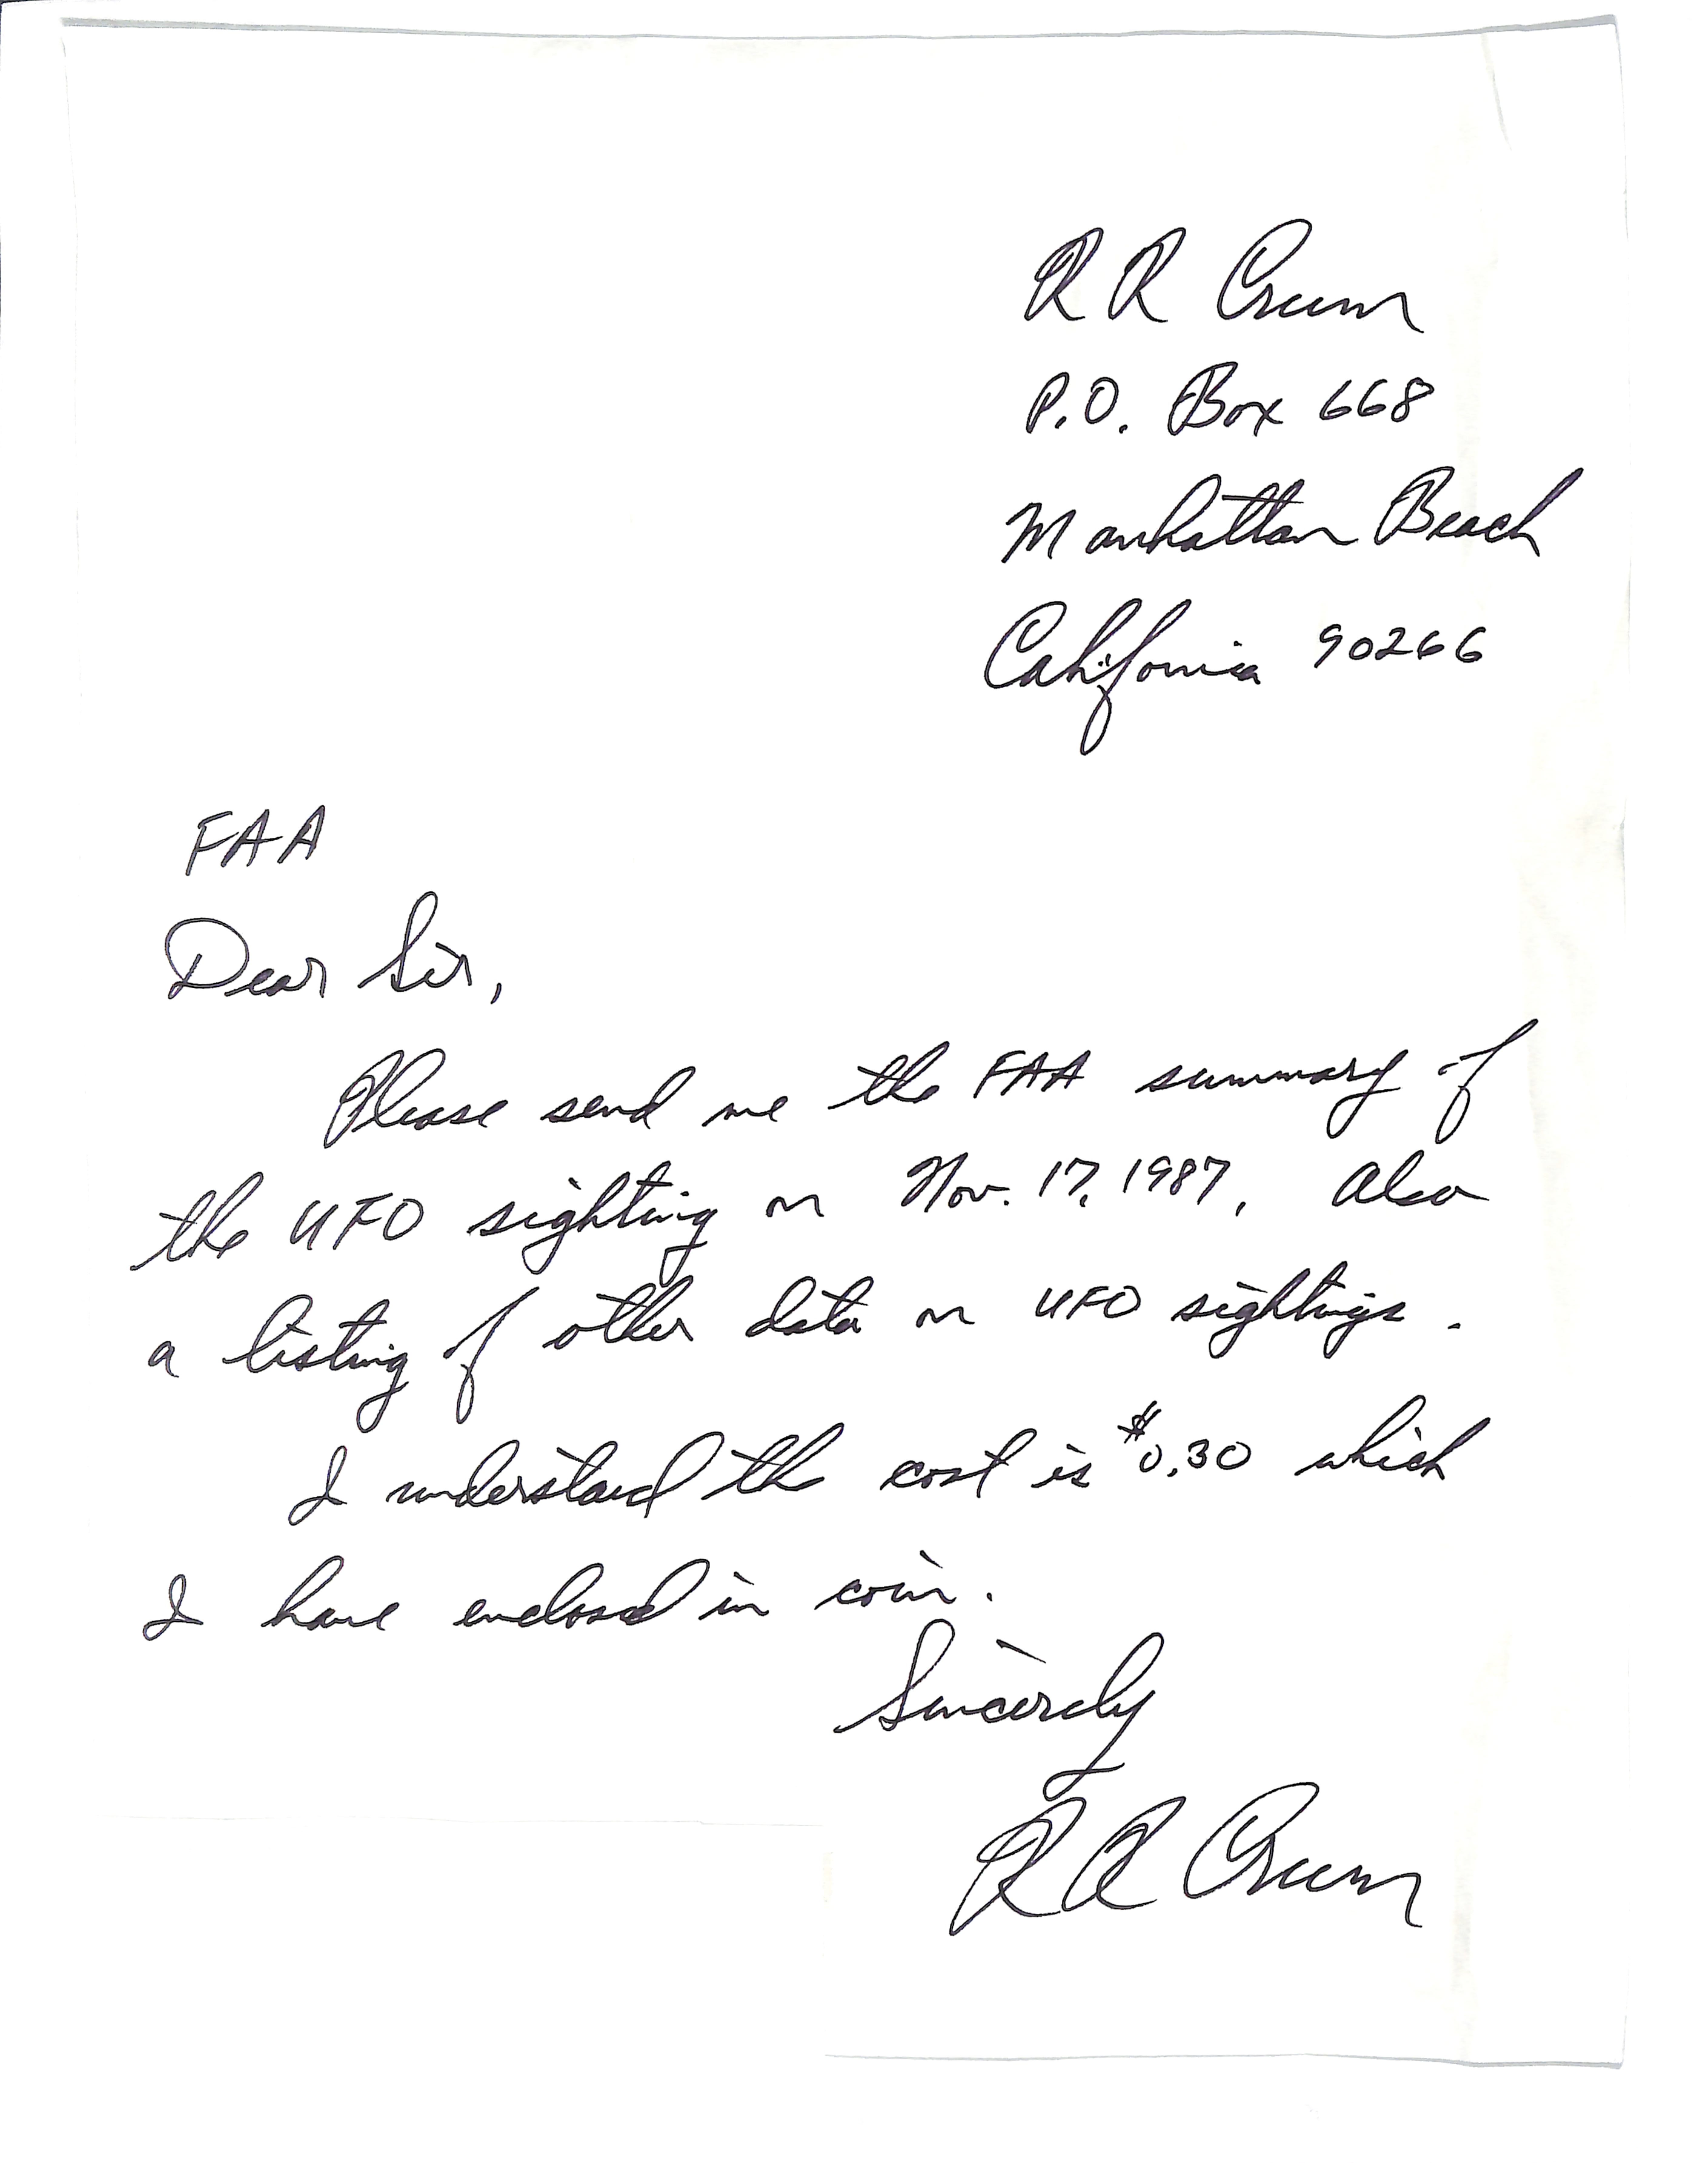 R R Crum
P.O. Box 668
Manhattan Beach
California 90266
FAA
Dear Sir,
Please send me the FAA summary of
the UFO sighting on Nov. 17, 1987, Also
a listing of other data on UFO sightings.
I understand the cost is $0.30 which
I have enclosed in coin.
Sincerely
R R Crum